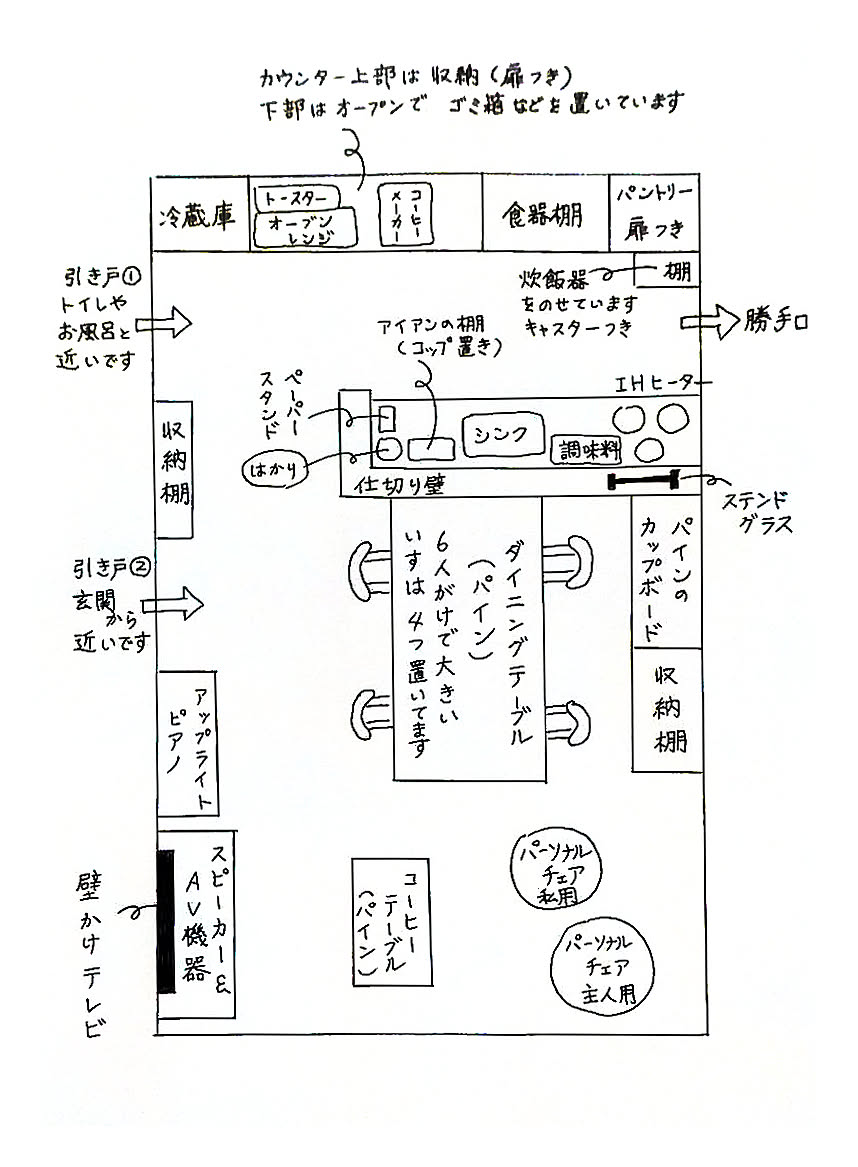 カウンター上部は収納(扉つき)
下部はオープンで ゴミ箱などを置いています
冷蔵庫
トースター
オーブン
レンジ
コーヒー
メーカー
食器棚
パントリー
扉つき
引き戸①
トイレや
お風呂と
近いです
炊飯器
をのせています
キャスターつき
棚
勝手口
アイアンの棚
(コップ置き)
IHヒーター
ペーパー
スタンド
はかり
シンク
調味料
収納棚
仕切り壁
ステンド
グラス
引き戸②
玄関
から
近いです
ダイニングテーブル
(パイン)
6人がけで大きい
いすは4つ置いてます
パインの
カップボード
収納棚
アップライト
ピアノ
スピーカー&
AV機器
壁かけテレビ
コーヒー
テーブル
(パイン)
パーソナル
チェア
私用
パーソナル
チェア
主人用